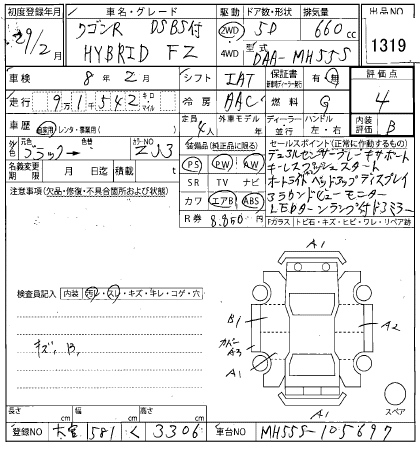 初度登録年月 車名・グレード 駆動 ドア数・形状 排気量 出品NO
29/2月 ワゴンR DSBS付 2WD 5D 660cc 1319
HYBRID FZ 4WD 型式 DAA-MH55S
車検 8年2月 シフト IAT 保証書 有・無 評価点
走行 9万1千542 キロ マイル 冷房 AAC 燃料 G 4
車歴 自家用・レンタ・事業用( ) 定員 4人 外車モデル 年 ディーラー 並行 ハンドル 左・右 内装評価 B
元色 ブラック 色替 カラーNO ZJ3 装備品(純正品に限る) セールスポイント(正常に作動するもの)
名義変更期限 月 日 積載 t PS PW AW デュアルセンサーブレーキサポート
注意事項(欠品・修復・不具合箇所および状態) SR TV ナビ キーレスプッシュスタート
カワ エアB ABS オートライト ヘッドアップディスプレイ
R券 8,850円 LEDターンランプ付ドアミラー
Fガラス トビ石・キズ・ヒビ・ワレ・リペア跡
A1
検査員記入 内装 汚レ・スレ・キズ・キレ・コゲ・穴
B1 A2
キズ、B、 カバー A3
A1
A1 スペア
長さ cm 幅 cm 高さ cm
登録NO 大宮 581 く 3306 車台NO MH55S-105697